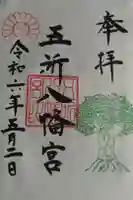 奉拝
五所八幡宮
令和六年五月二日